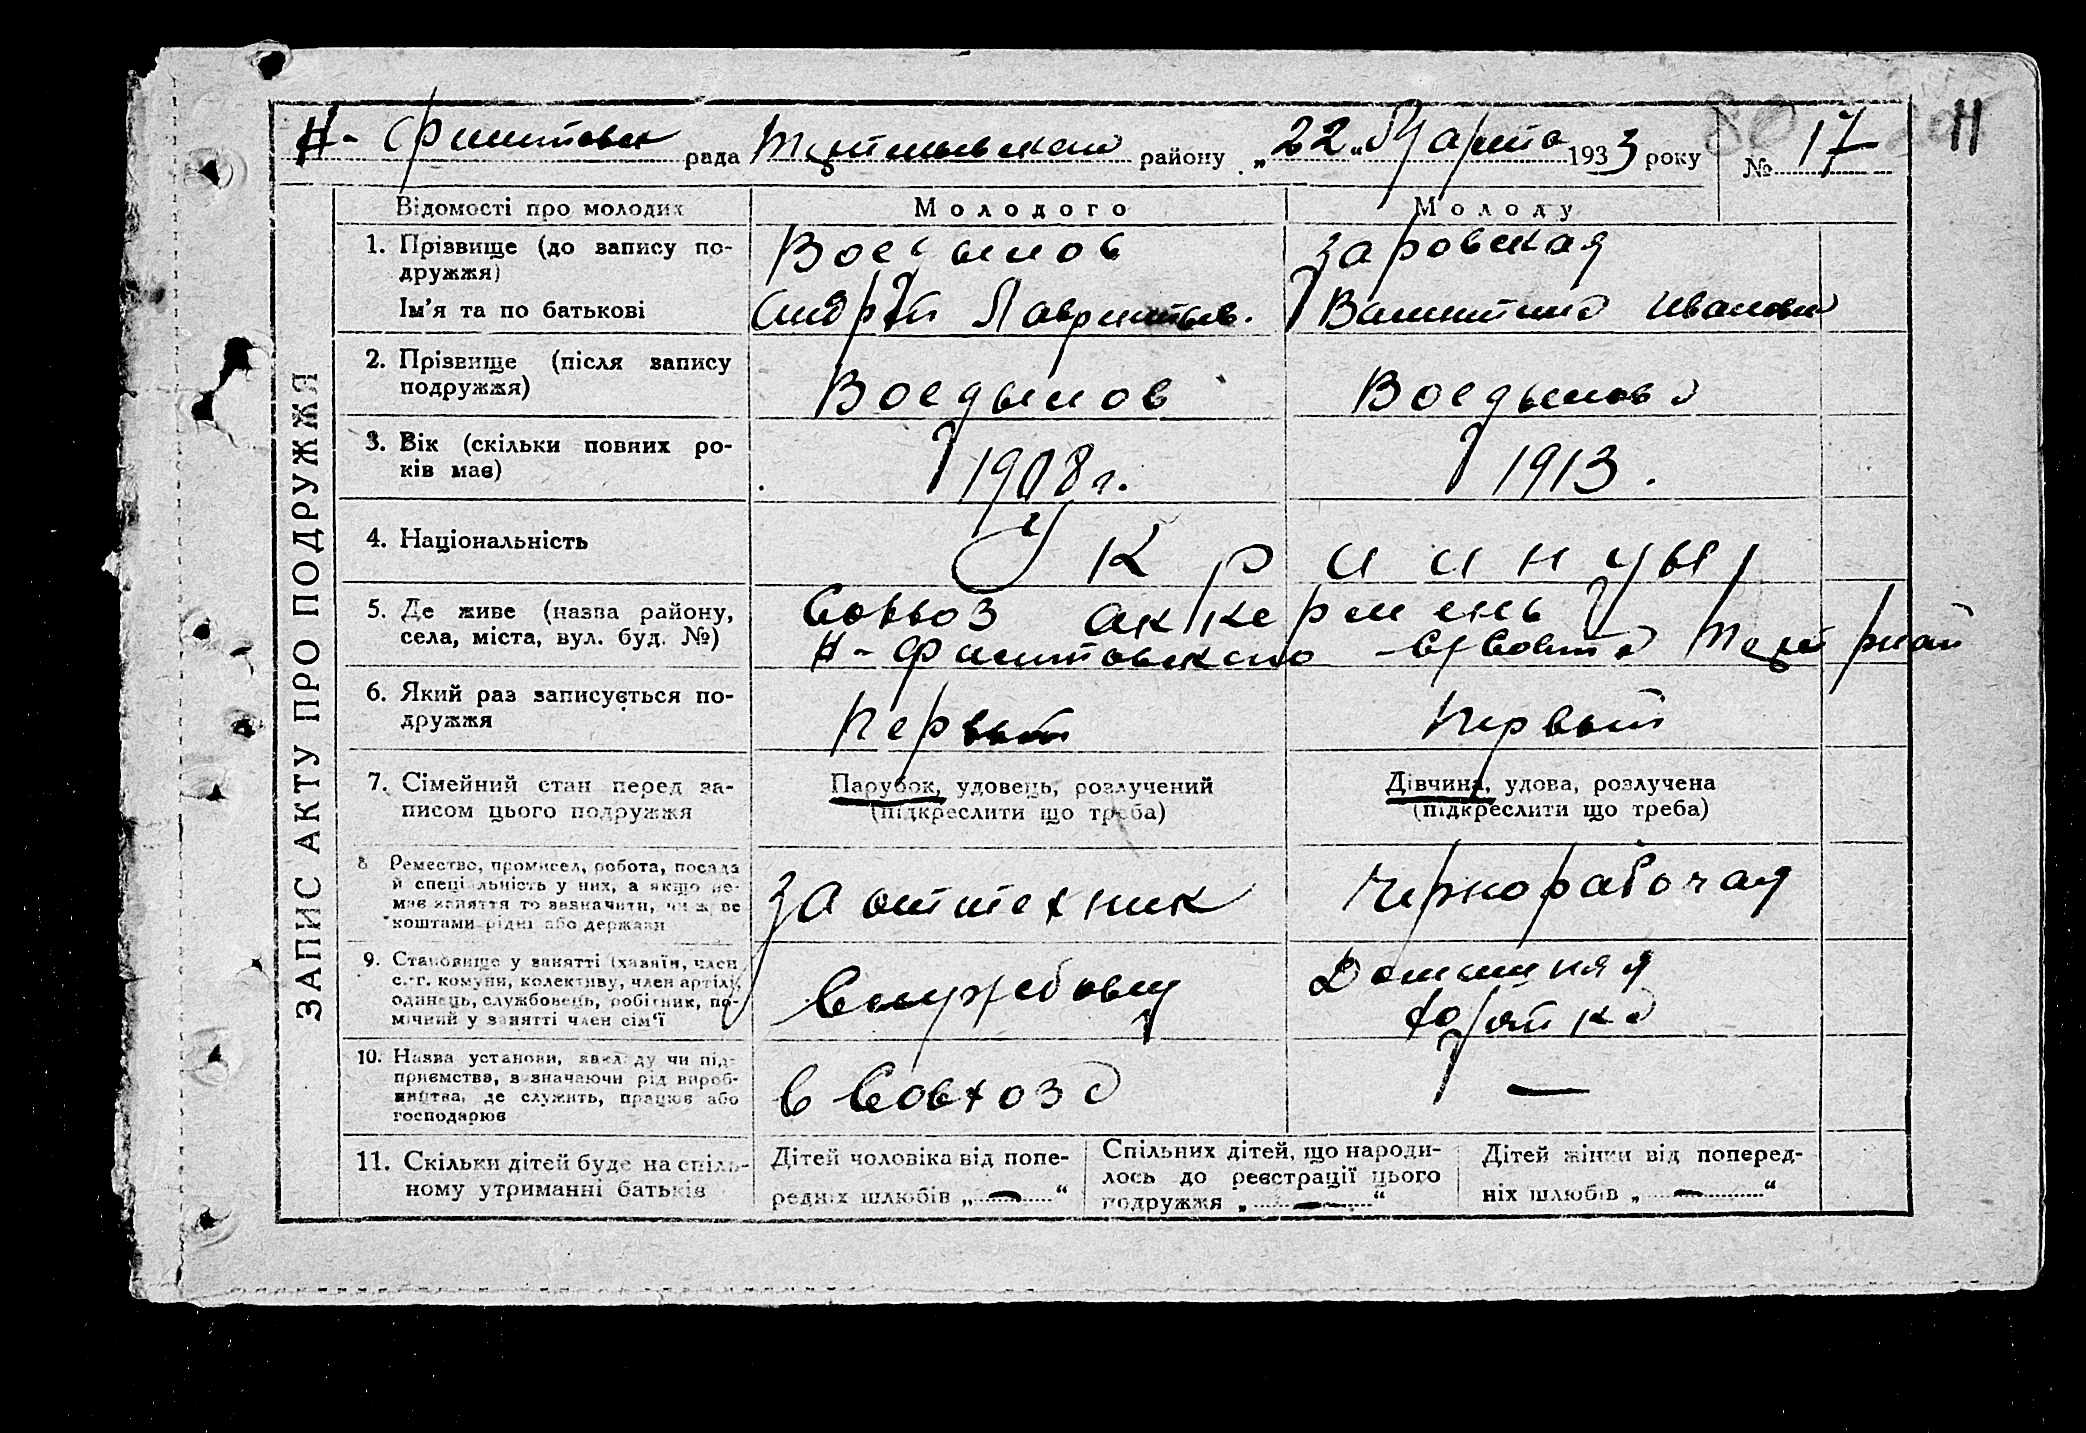 Н- рада району „22„ Марта 1933 року № 17
11
ЗАПИС АКТУ ПРО ПОДРУЖЖЯ
Відомості про молодих Молодого Молоду
1. Прізвище (до запису по-
дружжя)
Заровская
Ім'я та по батькові Андрей Лаврентьев. Валентина Иванов
2. Прізвище (після запису
подружжя)
Воедылов Воедылова
3. Вік (скільки повних ро-
ків має)
1908 г. 1913.
4. Національність Украинцы
5. Де живе (назва району,
села, міста, вул. буд. №)
Совхоз Аккермень
Н-
6. Який раз записується по-
дружжя
Первый Первый
7. Сімейний стан перед за-
писом цього подружжя
Парубок, удовець, розлучений
(підкреслити що треба)
Дівчина, удова, розлучена
(підкреслити що треба)
8 Ремество, промисел, робота, посада
й спеціальність у них, а якщо не-
має заняття то зазначити, чи живе
коштами рідні або держави
Заоттехник Чернорабочая
9. Становище у занятті (хазяїн, член
с.-г. комуни, колективу, член артілу,
одинець, службовець, робітник, по-
мічний у занятті член сім'ї
Службовец Домашняя
10. Назва установи, закладу чи під-
приємства, зазначаючи рід вироб-
ництва, де служить, працює або
господарює
в Совхозе —
11. Скільки дітей буде на спіль-
ному утриманні батьків
Дітей чоловіка від попе-
редніх шлюбів „ — “
Спільних дітей, що народи-
лось до реєстрації цього
подружжя „ — “
Дітей жінки від поперед-
ніх шлюбів „ — “